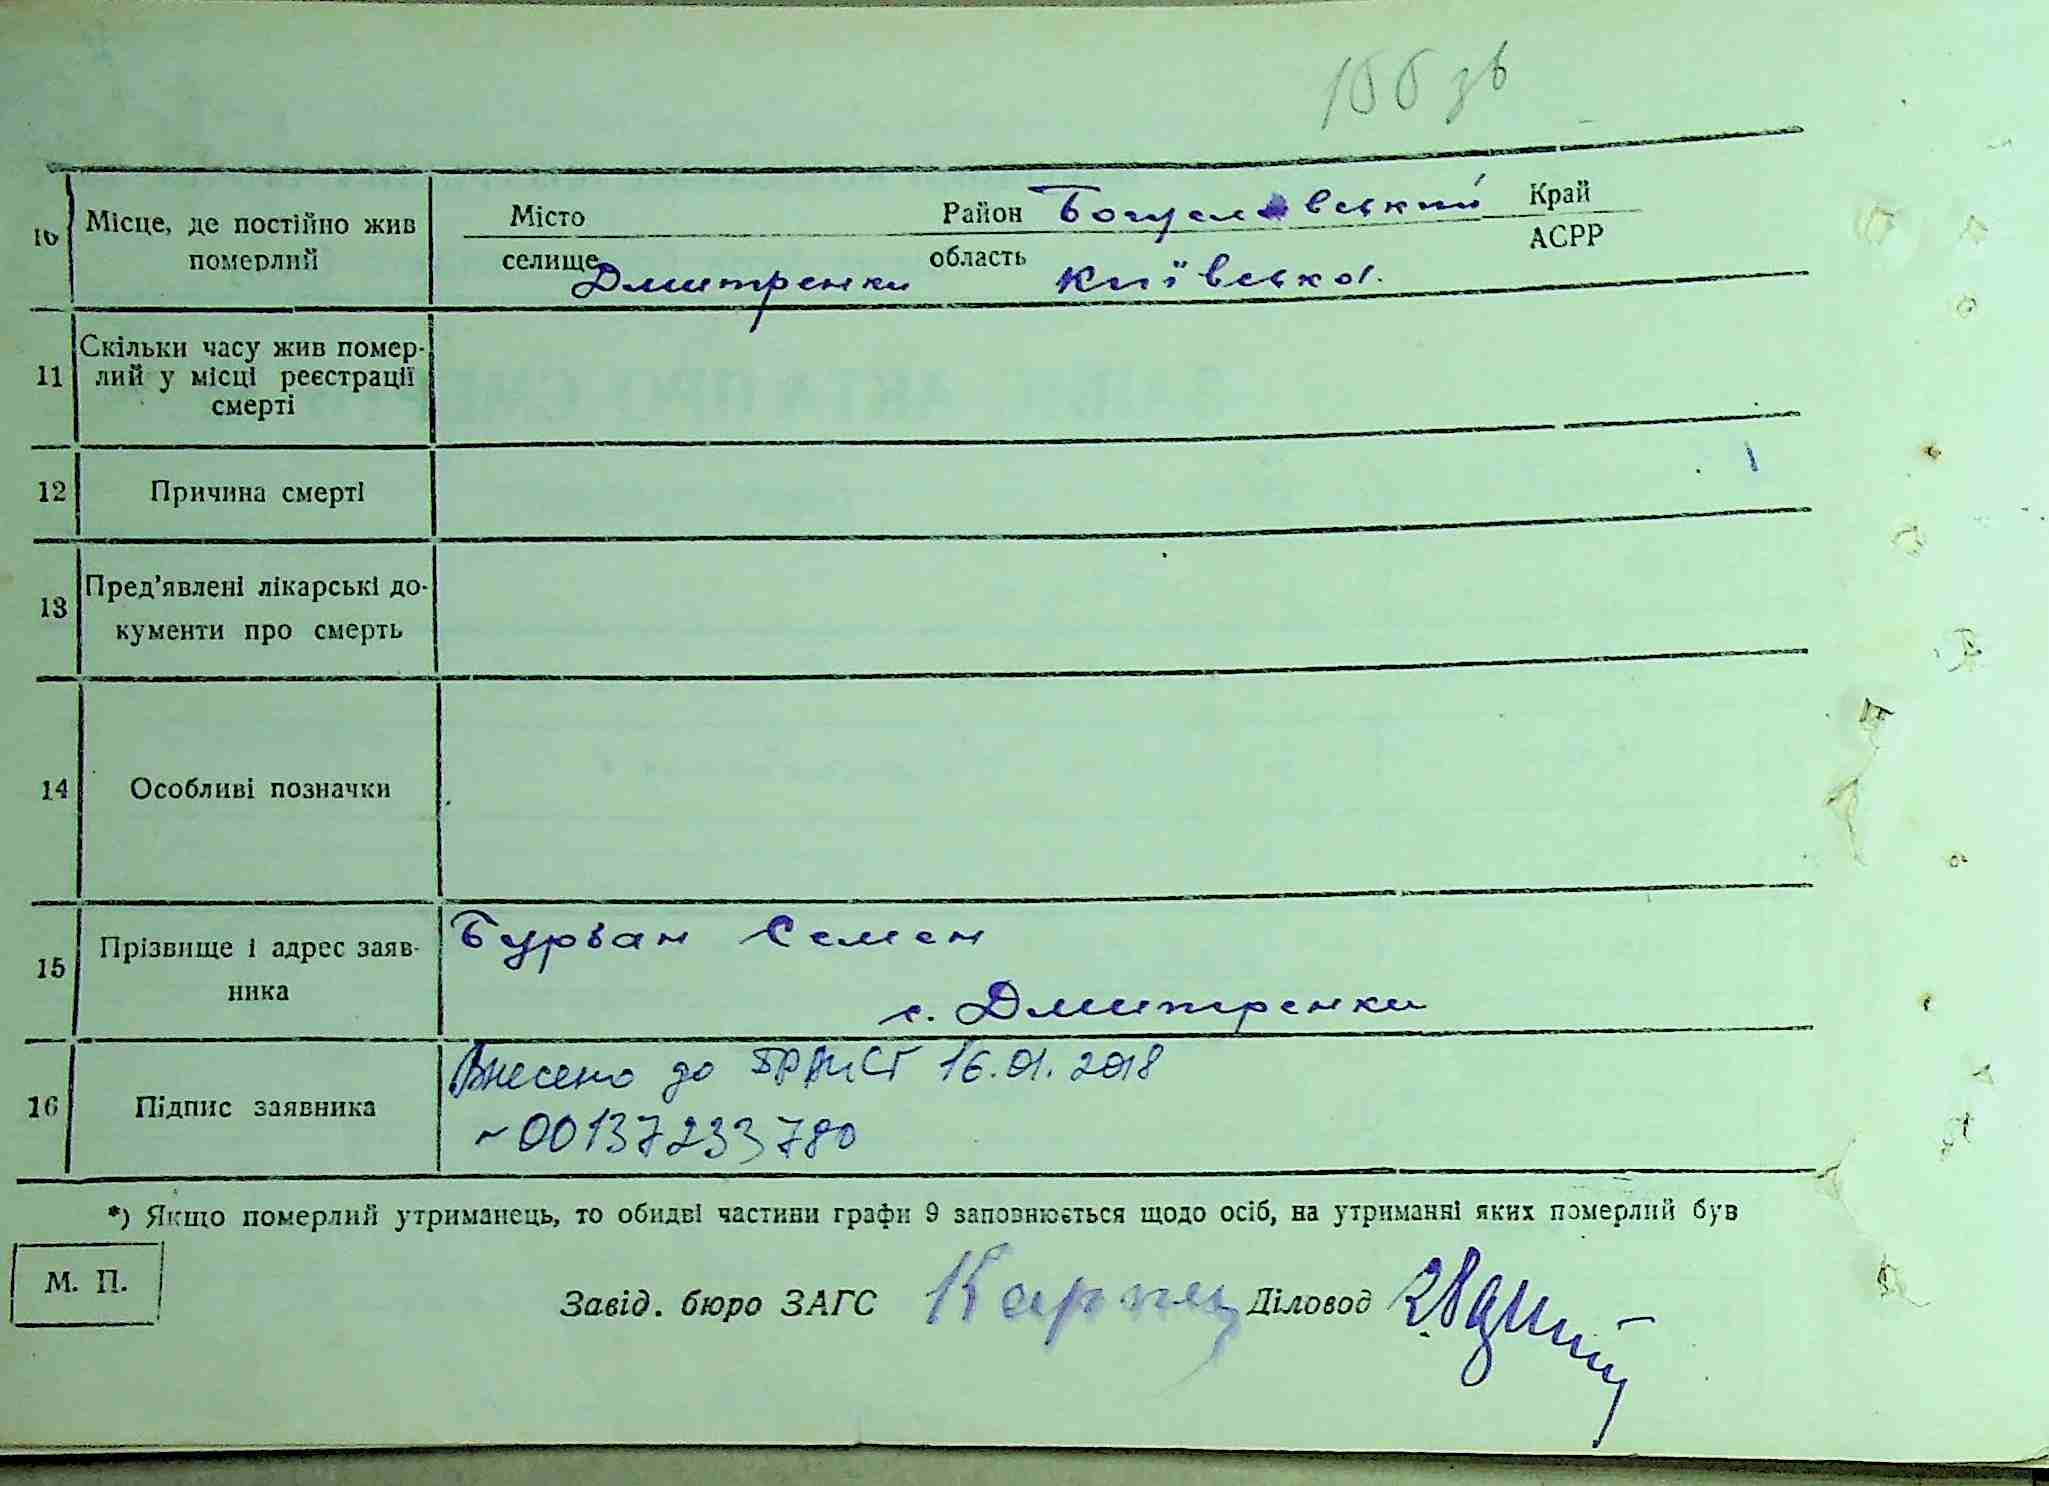 166 зв
10 Місце, де постійно жив померлий
Місто Район Богуславський Край
селище Дмитренки область Київська. АСРР
11 Скільки часу жив помер-
лий у місці реєстрації
смерті
12 Причина смерті
13 Пред’явлені лікарські до-
кументи про смерть
14 Особливі позначки
15 Прізвище і адрес заяв-
ника
Бурбан Семен
с. Дмитренки
16 Підпис заявника
Внесено до 16.01.2018
~00137233780
*) Якщо померлий утриманець, то обидві частини графи 9 заповнюється щодо осіб, на утриманні яких померлий був
М. П.
Завід. бюро ЗАГС Карпец Діловод